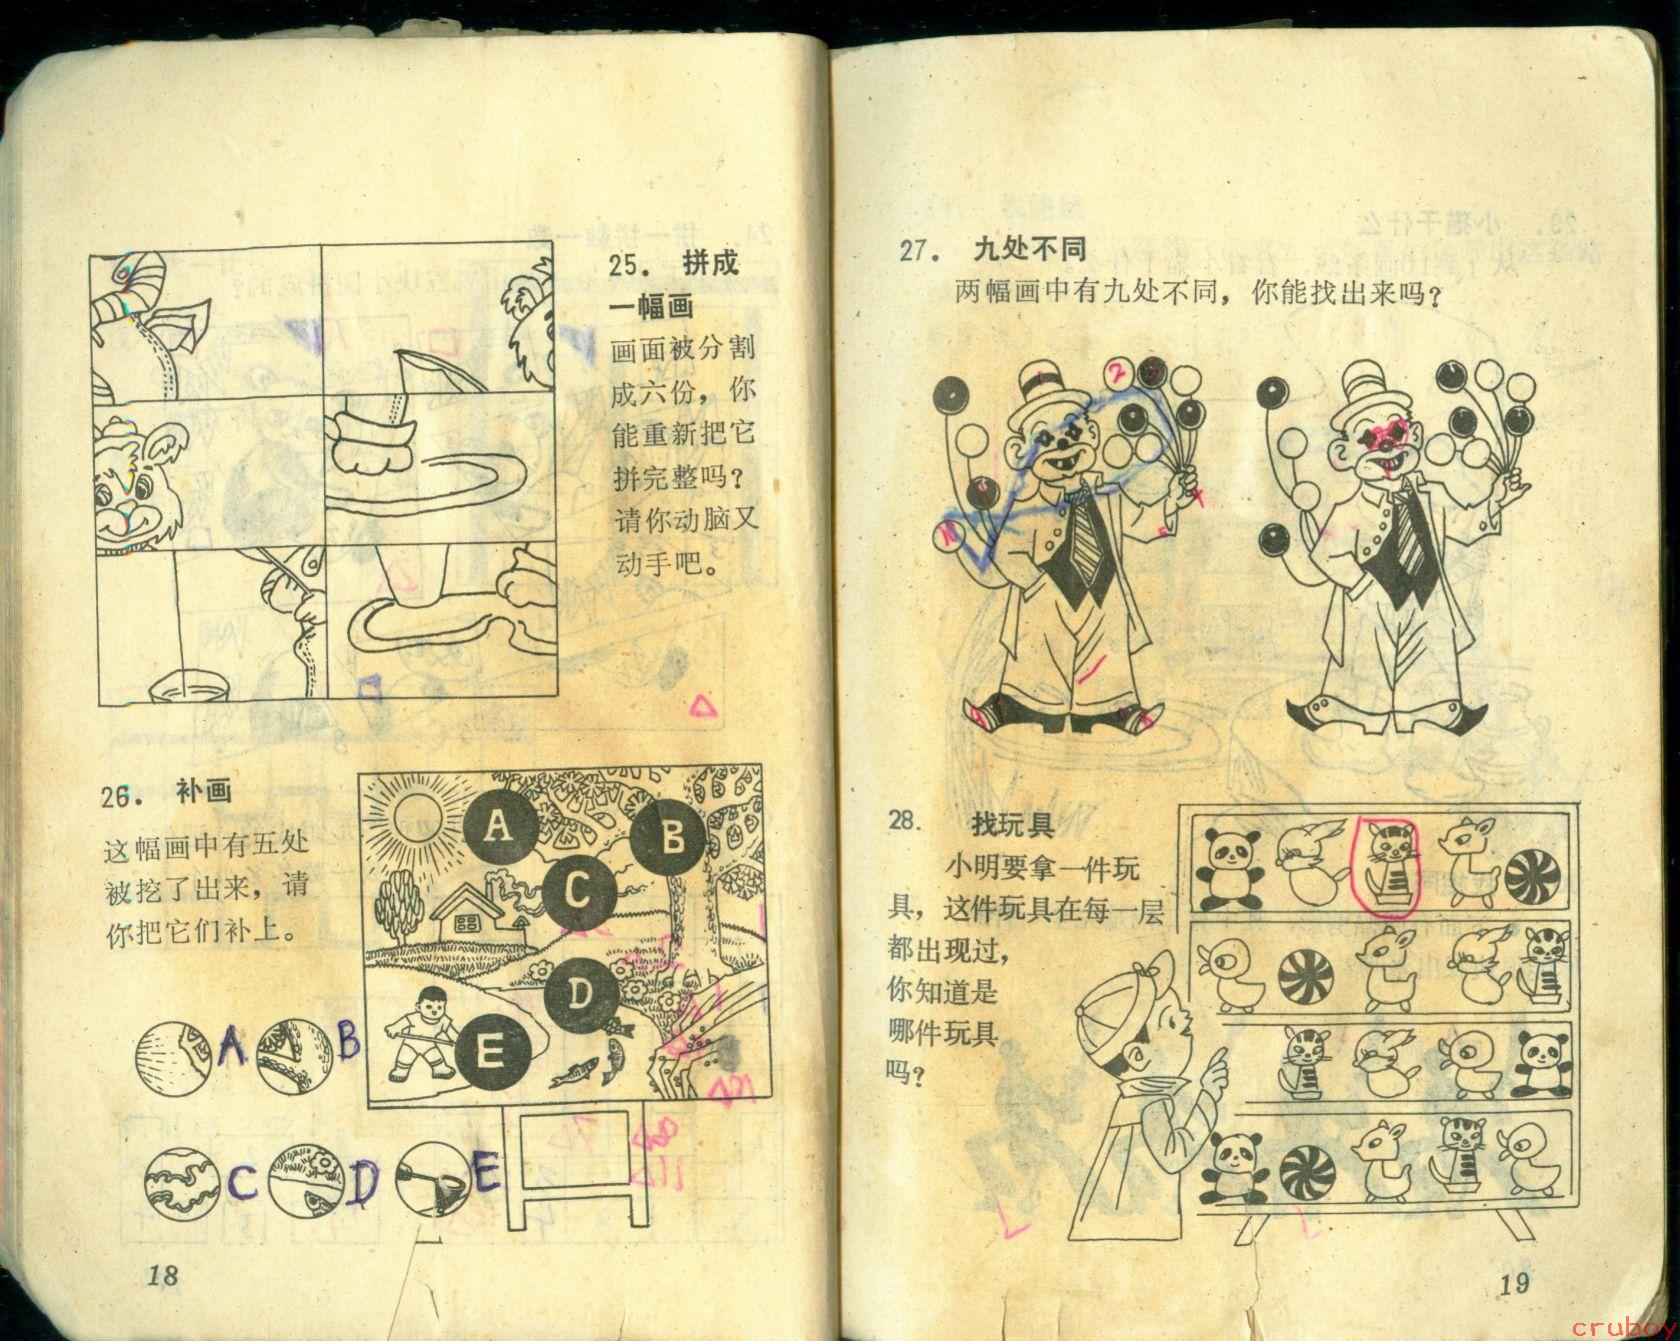 25. 拼成
一幅画
画面被分割
成六份，你
能重新把它
拼完整吗？
请你动脑又
动手吧。
26. 补画
这幅画中有五处
被挖了出来，请
你把它们补上。
A
B
C
D
E
A
B
C
D
E
18
27. 九处不同
两幅画中有九处不同，你能找出来吗？
28. 找玩具
小明要拿一件玩
具，这件玩具在每一层
都出现过，
你知道是
哪件玩具
吗？
19
cruboy